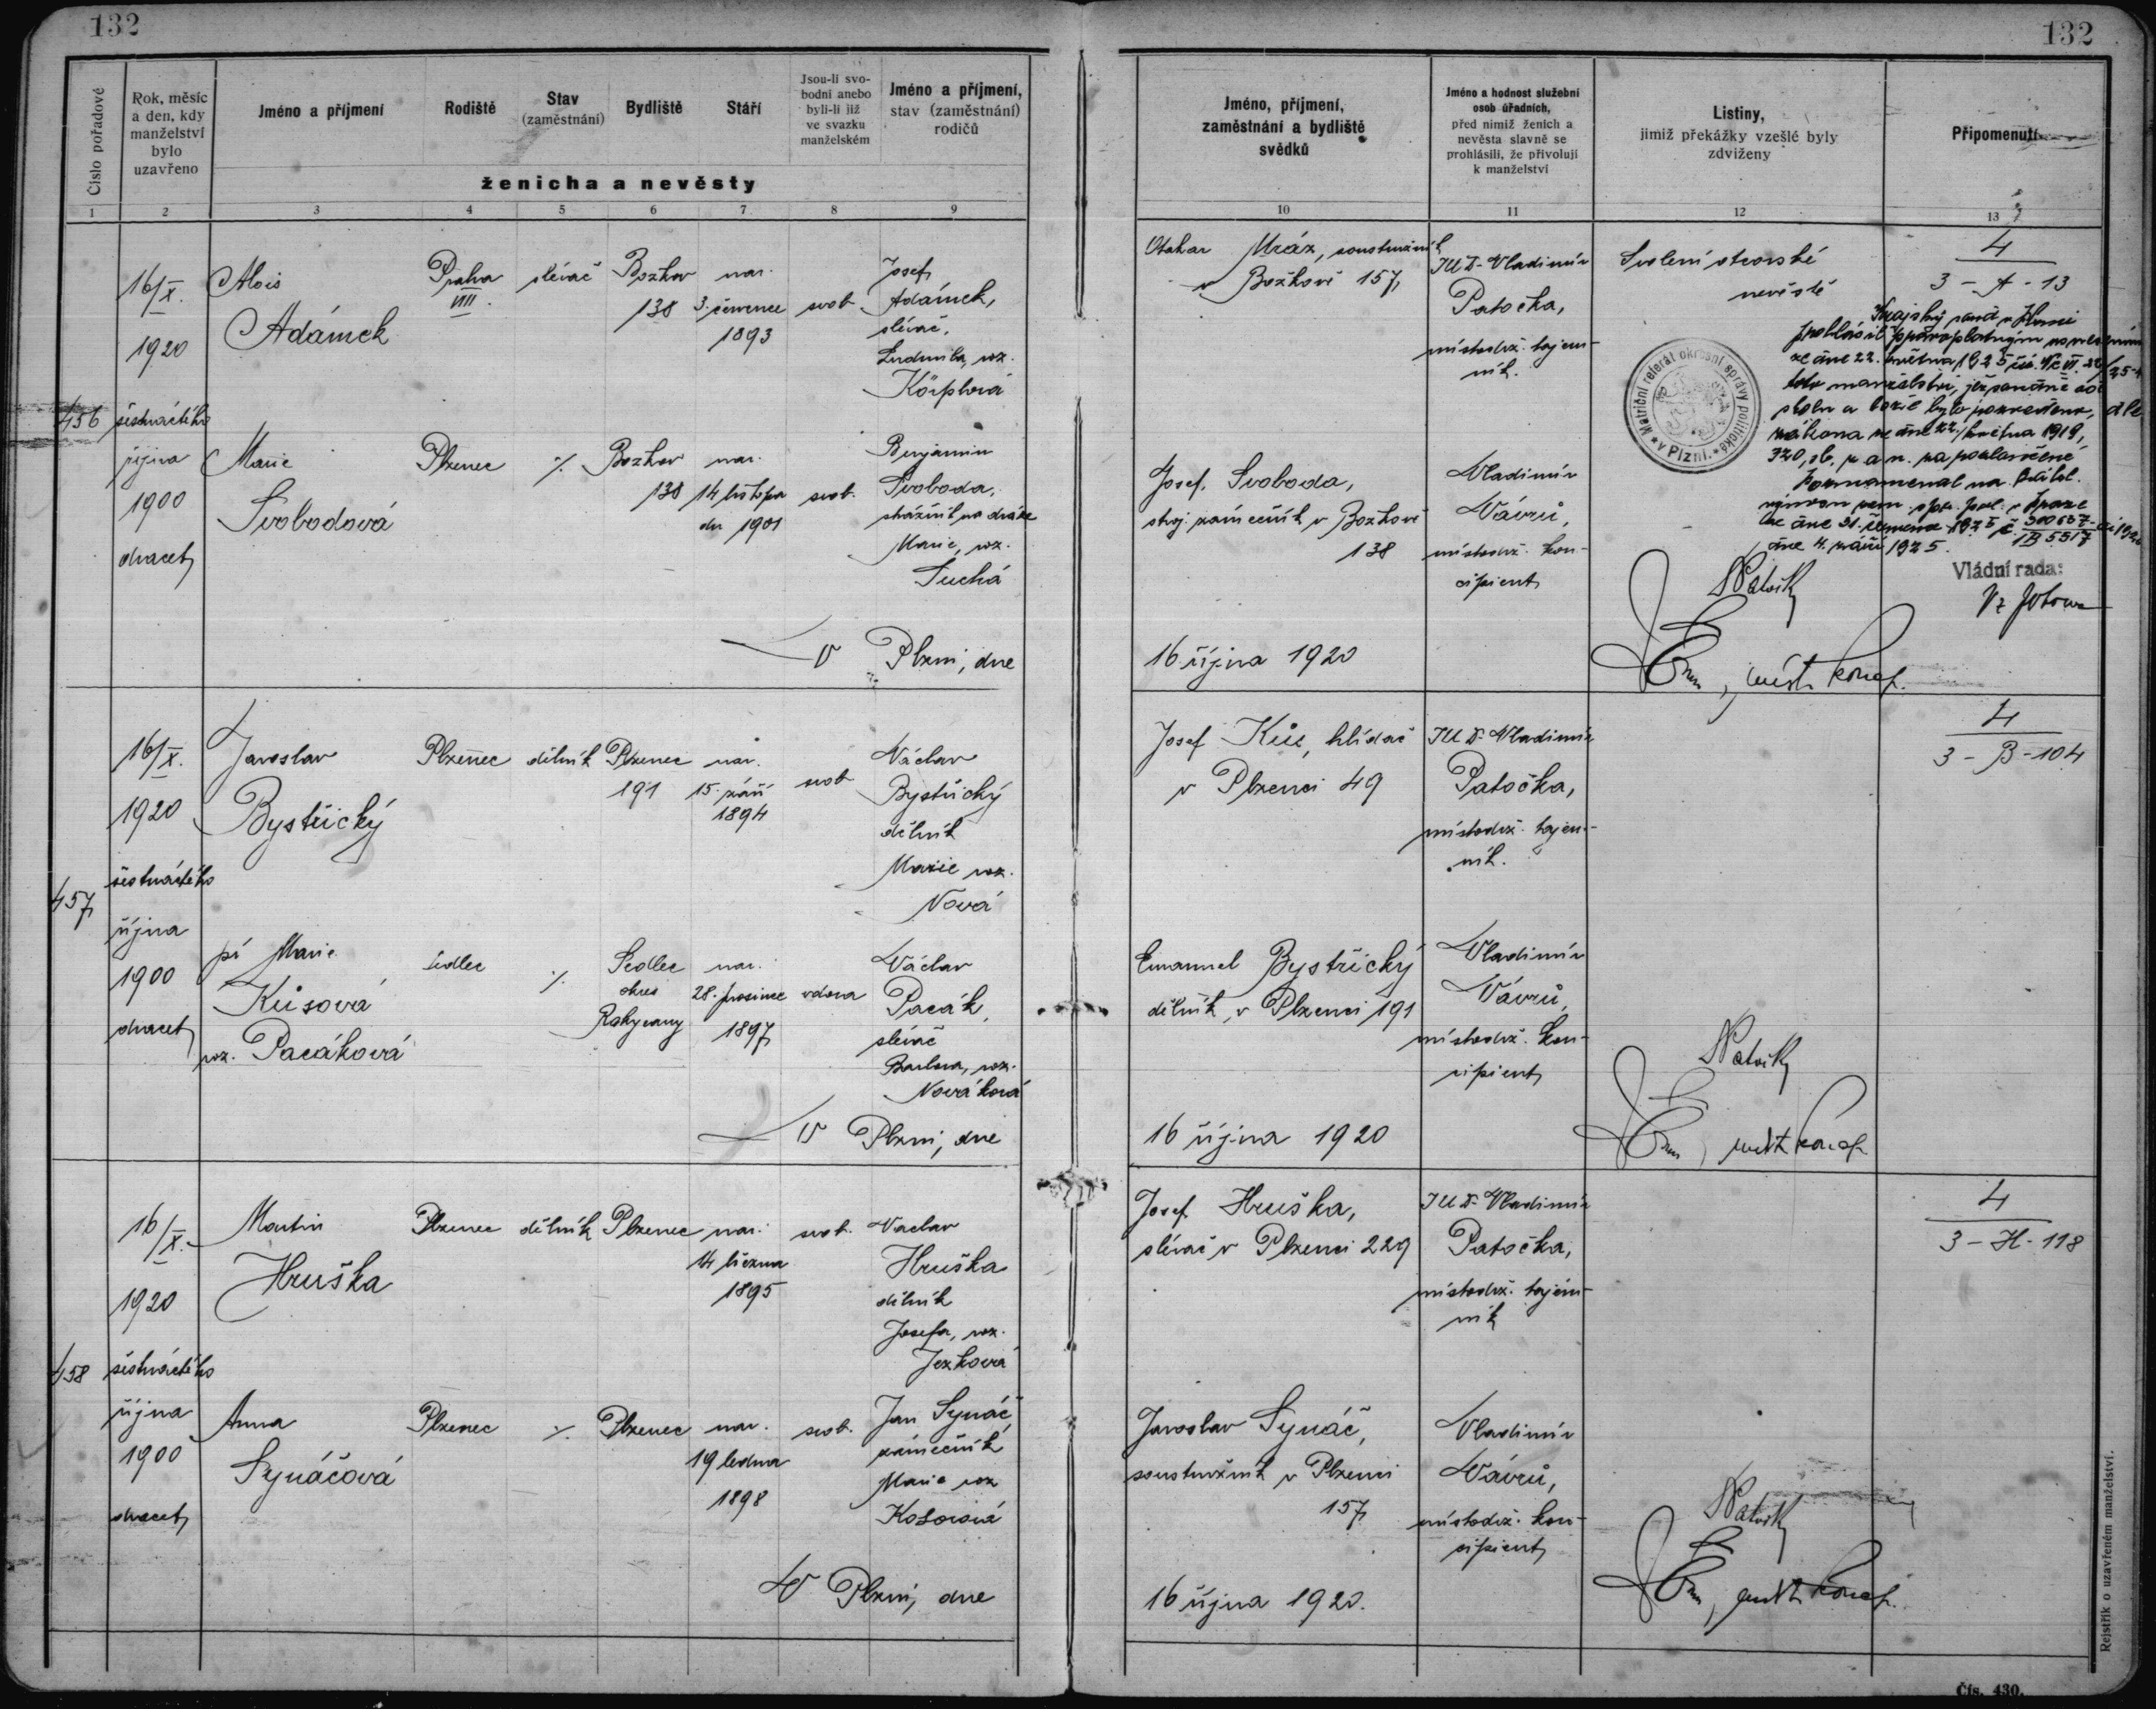 132
132
Číslo pořadové
Rok, měsíc
a den, kdy
manželství
bylo
uzavřeno
Jméno a příjmení
Rodiště
Stav
(zaměstnání)
Bydliště
Stáří
Jsou-li svo-
bodni anebo
byli-li již
ve svazku
manželském
Jméno a příjmení,
stav (zaměstnání)
rodičů
ženicha a nevěsty
1 2 3 4 5 6 7 8 9
Jméno, příjmení,
zaměstnání a bydliště
svědků
Jméno a hodnost služební
osob úřadních,
před nimiž ženich a
nevěsta slavně se
prohlásili, že přivolují
k manželství
Listiny,
jimiž překážky vzešlé byly
zdviženy
Připomenutí
10 11 12 13
456
16/X.
1920
šestnáctého
října
1900
dvacet
Alois
Adámek
Praha
VIII.
slévač
Bozkov
138
nar.
3. července
1893
svob.
Josef
Adámek,
slévač,
Ludmila, roz.
Marie
Svobodová
Plzenec
·/.
Bozkov
138
nar.
14 listopa
du 1901
svob.
Benjamin
Svoboda,
strážník na dráze
Marie, roz.
Suchá
V Plzni, dne
Otakar Mráz, soustružník
v Božkově 157,
JUDr Vladimír
Patočka,
místodrž. tajem-
ník.
Svolení otcovské
nevěstě
4
3 - A - 13
Krajský soud v Plzni
prohlásil pravoplatným usnesením
ze dne 22. května 1925 čís.
toto manželství, jež původně od
stolu a lože bylo rozvedeno, dle
zákona ze dne 22. května 1919,
320, sb. z. a n. za rozloučené
Poznamenal na základě
výnosu zem. spr. pol. v Praze
ze dne 31. července 1925 č.
dne 4. září 1925.
Matriční referát okresní správy politické
v Plzni.
Vládní rada:
Josef Svoboda,
stroj. zámečník v Bozkově
138
Vladimír
Vávrů,
místodrž. kon-
cipient
16. října 1920
457
16/X.
1920
šestnáctého
října
1900
dvacet
Jaroslav
Bystřický
Plzenec
dělník
Plzenec
191
nar.
15. září
1894
svob.
Václav
Bystřický
dělník
Marie roz.
Nová
pí Marie
Kůsová
roz. Pacáková
Sedlec
·/.
Sedlec
okres
Rokycany
nar.
28. prosince
1897
vdova
Václav
Pacák,
slévač
Barbora, roz.
Nováková
V Plzni, dne
Josef Kůs, hlídač
v Plzenci 49
JUDr Vladimír
Patočka,
místodrž. tajem-
ník.
4
3 - B - 104
Emanuel Bystřický
dělník, v Plzenci 191
Vladimír
Vávrů,
místodrž. kon-
cipient
16 října 1920
458
16/X.
1920
šestnáctého
října
1900
dvacet
Martin
Hruška
Plzenec
dělník
Plzenec
nar.
14 března
1895
svob.
Václav
Hruška
dělník
Josefa, roz.
Ježková
Anna
Synáčová
Plzenec
·/.
Plzenec
nar.
19 ledna
1898
svob.
Jan Synáč,
zámečník
Marie roz
V Plzni, dne
Josef Hruška,
slévač v Plzenci 229
JUDr Vladimír
Patočka,
místodrž. tajem-
ník
4
3 - H - 118
Jaroslav Synáč,
soustružník v Plzenci
157
Vladimír
Vávrů,
místodrž. kon-
cipient
16 října 1920.
Rejstřík o uzavřeném manželství.
Čís. 430.